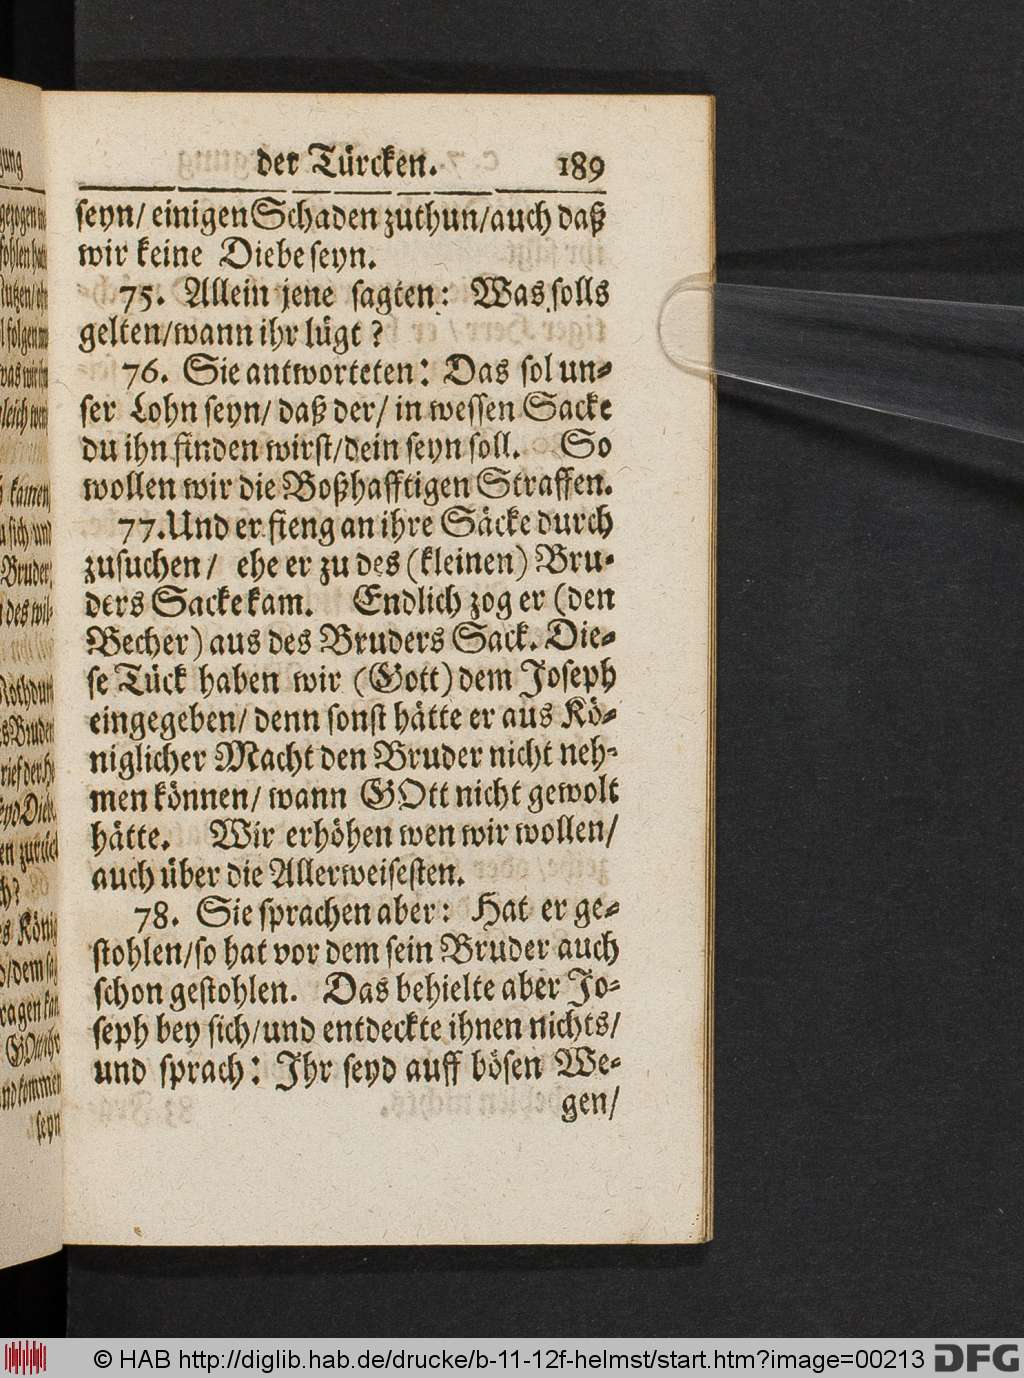 der Türcken. 189
seyn/ einigen Schaden zuthun/auch daß
wir keine Diebe seyn.
75. Allein jene sagten: Was solls
gelten/wann ihr lügt?
76. Sie antworteten: Das sol un-
ser Lohn seyn/ daß der/ in wessen Sacke
du ihn finden wirst/dein seyn soll. So
wollen wir die Boßhafftigen Straffen.
77.Und er fieng an ihre Säcke durch
zusuchen/ ehe er zu des (kleinen) Bru-
ders Sacke kam. Endlich zog er (den
Becher) aus des Bruders Sack. Die-
se Tück haben wir (Gott) dem Joseph
eingegeben/ denn sonst hätte er aus Kö-
niglicher Macht den Bruder nicht neh-
men können/ wann GOtt nicht gewolt
hätte. Wir erhöhen wen wir wollen/
auch über die Allerweisesten.
78. Sie sprachen aber: Hat er ge-
stohlen/so hat vor dem sein Bruder auch
schon gestohlen. Das behielte aber Jo-
seph bey sich/und entdeckte ihnen nichts/
und sprach: Ihr seyd auff bösen We-
gen/
© HAB http://diglib.hab.de/drucke/b-11-12f-helmst/start.htm?image=00213 DFG